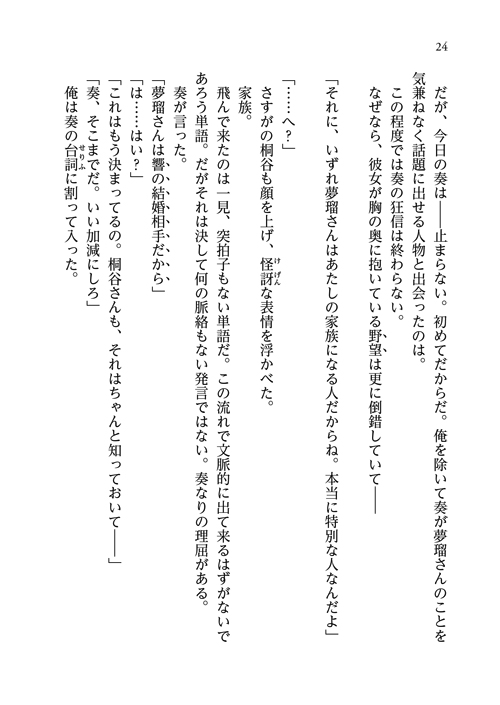 24
だが、今日の奏は――止まらない。初めてだからだ。俺を除いて奏が夢瑠さんのことを
気兼ねなく話題に出せる人物と出会ったのは。
この程度では奏の狂信は終わらない。
なぜなら、彼女が胸の奥に抱いている野望は更に倒錯していて――
「それに、いずれ夢瑠さんはあたしの家族になる人だからね。本当に特別な人なんだよ」
「……へ?」
さすがの桐谷も顔を上げ、怪訝な表情を浮かべた。
家族。
飛んで来たのは一見、突拍子もない単語だ。この流れで文脈的に出て来るはずがないで
あろう単語。だがそれは決して何の脈絡もない発言ではない。奏なりの理屈がある。
奏が言った。
「夢瑠さんは響の結婚相手だから」
「は……はい?」
「これはもう決まってるの。桐谷さんも、それはちゃんと知っておいて――」
「奏、そこまでだ。いい加減にしろ」
俺は奏の台詞に割って入った。